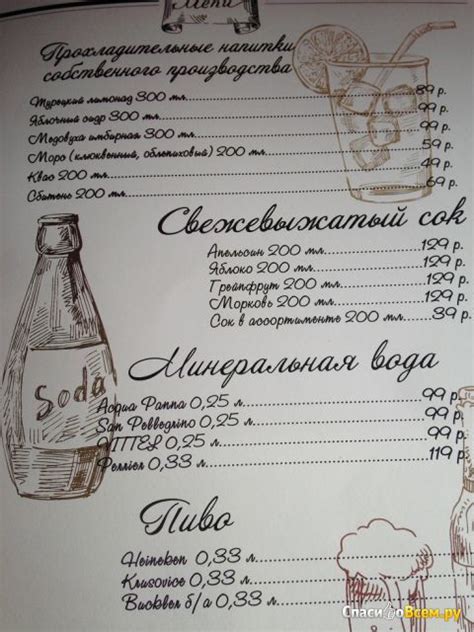 Меню
Прохладительные напитки
собственного производства
Турецкий лимонад 300 мл. 89 р.
Яблочный сидр 300 мл. 99 р.
Медовуха имбирная 300 мл. 99 р.
Морс (клюквенный, облепиховый) 200 мл. 59 р.
Квас 200 мл. 49 р.
Сбитень 200 мл. 69 р.
Свежевыжатый сок
Апельсин 200 мл. 129 р.
Яблоко 200 мл. 129 р.
Грейпфрут 200 мл. 129 р.
Морковь 200 мл. 129 р.
Сок в ассортименте 200 мл. 39 р.
Soda
Минеральная вода
Acqua Panna 0,25 л. 99 р.
San Pellegrino 0,25 л. 99 р.
VITTEL 0,25 л. 99 р.
Perrier 0,33 л. 119 р.
Пиво
Heineken 0,33 л.
Krusovice 0,33 л.
Buckler б/а 0,33 л.
СпасибоВсем.ру